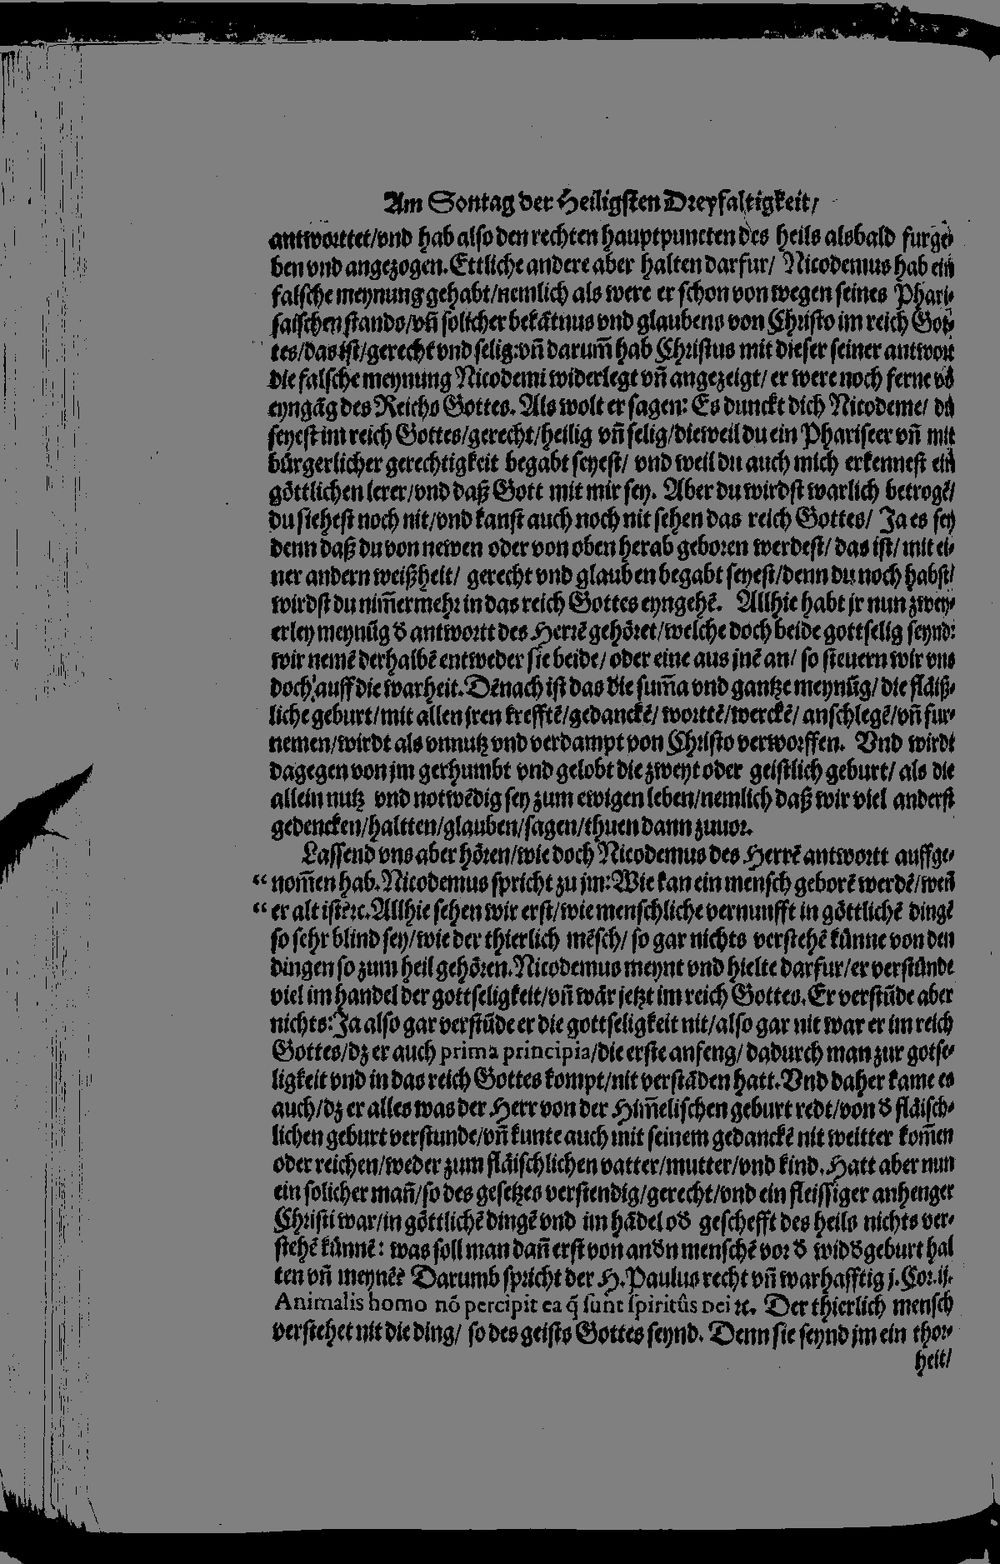 Am Sontag der Heiligsten Dreyfaltigkeit/
antworttet/vnd hab also den rechten hauptpuncten des heils alsbald furge-
ben vnd angezogen. Ettliche andere aber halten darfur/ Nicodemus hab ein
falsche meynung gehabt/nemlich als were er schon von wegen seines Phari-
saischen stands/vñ solicher bekātnus vnd glaubens von Christo im reich Got-
tes/das ist/gerecht vnd selig: vñ darum̄ hab Christus mit dieser seiner antwort
die falsche meynung Nicodemi widerlegt vñ angezeigt/ er were noch ferne vō
eyngāg des Reichs Gottes. Als wolt er sagen: Es dunckt dich Nicodeme/ du
seyest im reich Gottes/gerecht/heilig vñ selig/dieweil du ein Phariseer vñ mit
bürgerlicher gerechtigkeit begabt seyest/ vnd weil du auch mich erkennest ein
göttlichen lerer/vnd daß Gott mit mir sey. Aber du wirdst warlich betrogē/
du siehest noch nit/vnd kanst auch noch nit sehen das reich Gottes/ Ja es sey
denn daß du von newen oder von oben herab geboren werdest/ das ist/ mit ei-
ner andern weißheit/ gerecht vnd glauben begabt seyest/denn du noch habst/
wirdst du nim̄ermehr in das reich Gottes eyngehē. Allhie habt jr nun zwey-
erley meynūg d̄ antwortt des Herrē gehöret/welche doch beide gottselig seynd:
wir nemē derhalbē entweder sie beide/ oder eine aus jnē an/ so steuern wir vns
doch auff die warheit. Dēnach ist das die sum̄a vnd gantze meynūg/ die fläiß-
liche geburt/mit allen jren kreffte̅/gedanckē/ worttē/werckē/ anschlegē/vñ fur-
nemen/wirdt als vnnutz vnd verdampt von Christo verworffen. Vnd wirdt
dagegen von jm gerhumbt vnd gelobt die zweyt oder geistlich geburt/ als die
allein nutz vnd notwēdig sey zum ewigen leben/nemlich daß wir viel anderst
gedencken/haltten/glauben/sagen/thuen dann zuuor.
Lassend vns aber hören/wie doch Nicodemus des Herrē antwortt auffge-
“ nom̄en hab. Nicodemus spricht zu jm: Wie kan ein mensch geborē werdē/weñ
“ er alt ist ꝛc. Allhie sehen wir erst/wie menschliche vernunfft in göttlichē dingē
so sehr blind sey/wie der thierlich mēsch/ so gar nichts verstehē künne von den
dingen so zum heil gehören. Nicodemus meynt vnd hielte darfur/er verstünde
viel im handel der gottseligkeit/vñ wär jetzt im reich Gottes. Er verstūde aber
nichts: Ja also gar verstūde er die gottseligkeit nit/also gar nit war er im reich
Gottes/dz er auch prima principia/die erste anfeng/ dadurch man zur gotse-
ligkeit vnd in das reich Gottes kompt/nit verstāden hatt. Vnd daher kame es
auch/dz er alles was der Herr von der Him̄elischen geburt redt/von d̄ fläisch-
lichen geburt verstunde/vñ kunte auch mit seinem gedanckē nit weitter kom̄en
oder reichen/weder zum fläischlichen vatter/mutter/vnd kind. Hatt aber nun
ein solicher mañ/so des gesetzes verstendig/gerecht/vnd ein fleissiger anhenger
Christi war/in göttlichē dingē vnd im hādel od̄ geschefft des heils nichts ver-
stehē künnē: was soll man dañ erst von and̄n menschē vor d̄ wid̄geburt hal
ten vñ meynē? Darumb spricht der H. Paulus recht vñ warhafftig j. Cor. ij.
Animalis homo nō percipit ea q̄ sunt spiritûs Dei ꝛc. Der thierlich mensch
verstehet nit die ding/ so des geists Gottes seynd. Denn sie seynd jm ein thor-
heit/